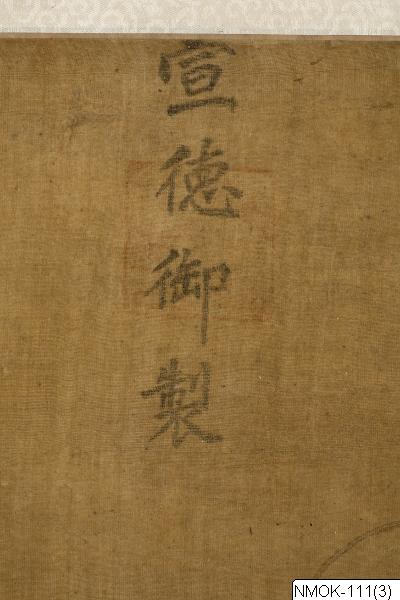 宣德御製
NMOK-111(3)